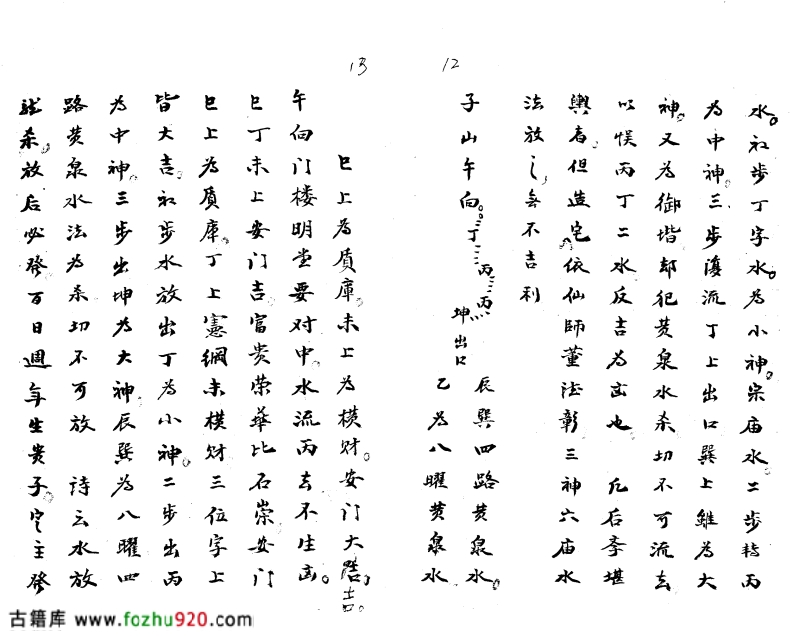 12
水。初步丁字水。为小神。宗庙水。二步转丙
为中神。三步复流丁上出口巽上雖为大
神。又为御堦却犯黄泉水杀切不可流去
以悮丙丁二水反吉为凶也 凡后李堪
輿者。但造宅。依仙師董法彰三神六庙水
法放之,無不吉利
子山午向。丁 丙 丙
坤出口
辰巽四路黄泉水。
乙为八曜黄泉水
13
巳上为質庫。未上为横财。安门大吉。
午向门楼明堂要对中。水流丙去不生凶。
巳丁未上安门吉。富贵荣華比石崇安门
巳上为質庫。丁上憲綱未横财三位字上
皆大吉。初步水放出丁为小神。二步出丙
为中神。三步出坤为大神。辰巽为八曜四
路黄泉水法为杀切不可放 诗云水放
杀。放后必發百日週年生贵子。定主發
古籍库 www.fozhu920.com